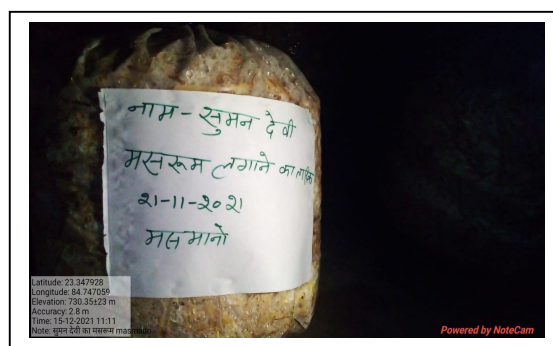 नाम - सुमन देवी
मसरूम लगाने का
२१-११-२०२१
मसमानो
Latitude: 23.347928
Longitude: 84.747059
Elevation: 730.35±23 m
Accuracy: 2.8 m
Time: 15-12-2021 11:11
Note: सुमन देवी का मसरूम masmano
Powered by NoteCam